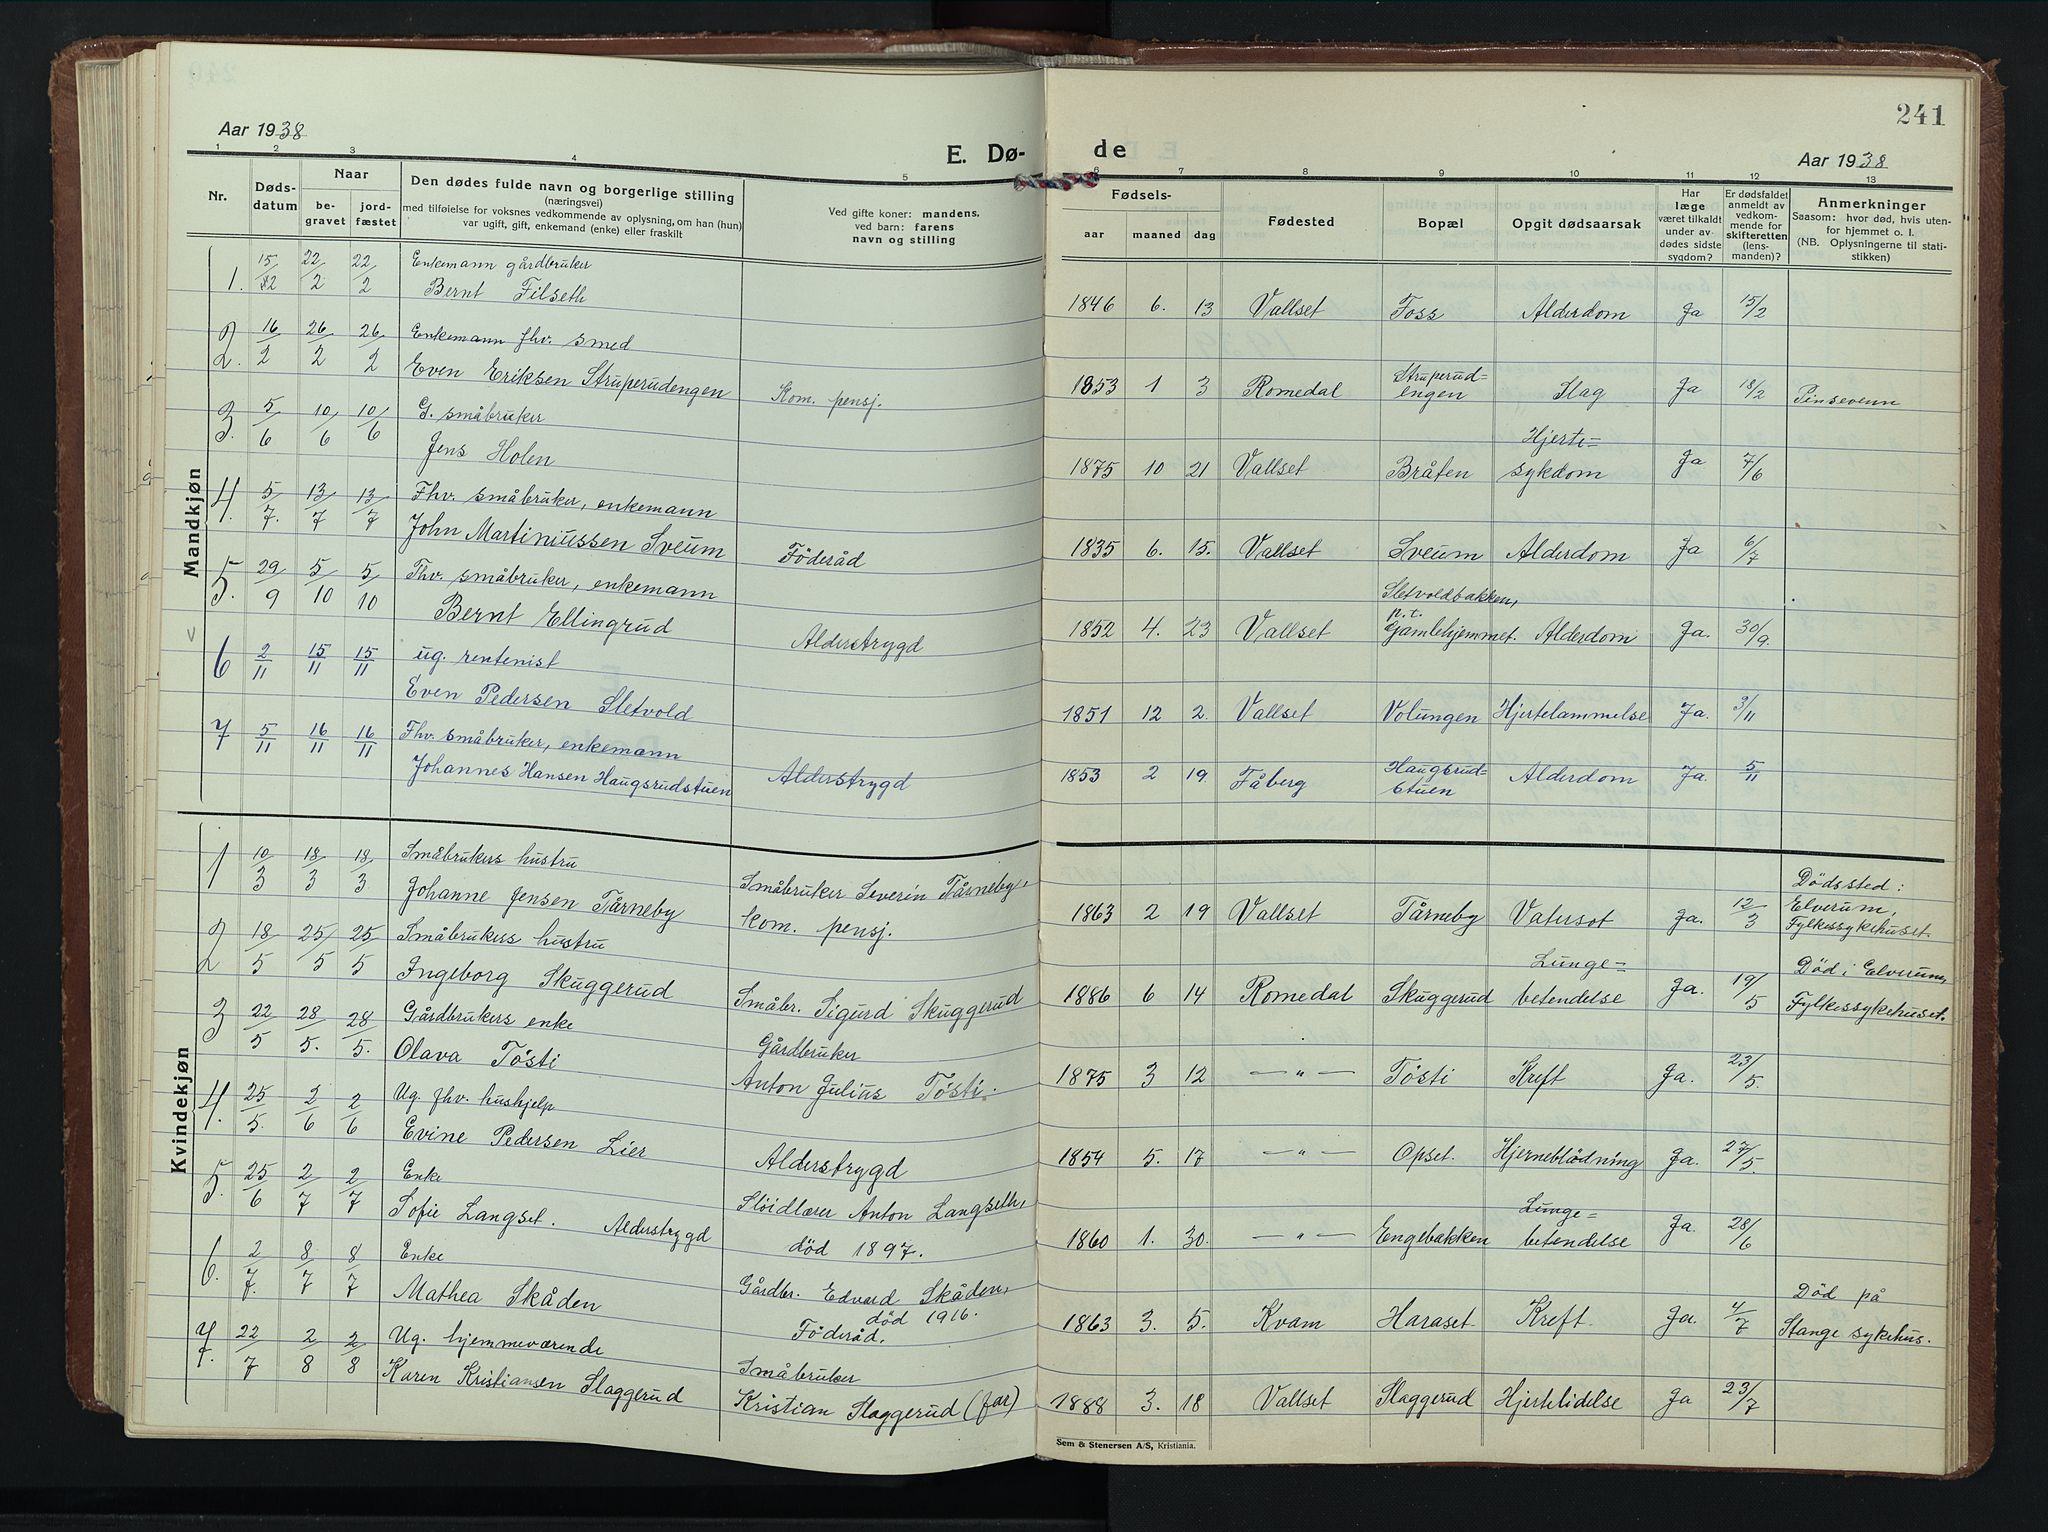 241
Aar 1938
E. Dø-
de
Aar 1938
1 2 3 4 5 6 7 8 9 10 11 12 13
Nr.
Døds-
datum
Naar
be-
gravet
jord-
fæstet
Den dødes fulde navn og borgerlige stilling
(næringsvei)
med tilføielse for voksnes vedkommende av oplysning, om han (hun)
var ugift, gift, enkemand (enke) eller fraskilt
Ved gifte koner: mandens,
ved barn: farens
navn og stilling
Fødsels-
aar maaned dag
Fødested
Bopæl
Opgit dødsaarsak
Har
læge
været tilkaldt
under av-
dødes sidste
sygdom?
Er dødsfaldet
anmeldt av
vedkom-
mende for
skifteretten
(lens-
manden)?
Anmerkninger
Saasom: hvor død, hvis uten-
for hjemmet o. l.
(NB. Oplysningerne til stati-
stikken)
Mandkjøn
1. 15/2 22/2 22/2 Enkemann gårdbruker
Bernt Filseth 1846 6. 13 Vallset Foss Alderdom Ja 15/2
2. 16/2 26/2 26/2 Enkemann fhv. smed
Even Eriksen Struperudengen Kom. pensj. 1853 1 3 Romedal Struperud-
engen Slag Ja 18/2 Pinsevenn
3. 5/6 10/6 10/6 G. småbruker
Jens Holen 1875 10 21 Vallset Bråten Hjerte=
sykdom Ja 7/6
4. 5/7. 13/7 13/7 Fhv. småbruker, enkemann
John Martiniussen Sveum Föderåd 1835 6. 15. Vallset Sveum Alderdom Ja 6/7
5. 29/9 5/10 5/10 Fhv. småbruker, enkemann
Bernt Ellingrud Alderstrygd 1852 4. 23 Vallset Sletvoldbakken,
p.t.
Gamlehjemmet. Alderdom Ja. 30/9.
6 2/11 15/11 15/11 ug. rentenist
Even Pedersen Sletvold 1851 12 2. Vallset Volungen Hjertelammelse Ja. 3/11
7 5/11 16/11 16/11 Fhv. småbruker, enkemann
Johannes Hansen Haugsrudstuen Alderstrygd 1853 2 19. Fåberg Haugsrud-
stuen Alderdom Ja. 5/11
Kvindekjøn
1 10/3 18/3 18/3 Småbrukers hustru
Johanne Jensen Tårneby Småbruker Severin Tårneby,
kom. pensj. 1863 2 19 Vallset Tårneby Vatersot Ja. 12/3 Dödssted:
Elverum,
Fylkessykehuset.
2 18/5 25/5 25/5 Småbrukers hustru
Ingeborg Skuggerud Småbr. Sigurd Skuggerud 1886 6 14 Romedal Skuggerud Lunge=
betendelse Ja. 19/5 Död i Elverum,
Fylkessykehuset.
3 22/5 28/5. 28/5. Gårdbrukers enke
Olava Tösti Gårdbruker
Anton Julius Tösti. 1875 3 12 —"— Tösti Kreft Ja. 23/5.
4. 25/5. 2/6 2/6 Ug. fhv. hushjelp
Evine Pedersen Lier Alderstrygd 1854 5. 17 —"— Opset. Hjerneblödning Ja. 27/5.
5. 25/6 2/7 2/7 Enke
Sofie Langset. Alderstrygd Slöidlærer Anton Langseth,
död 1897. 1860 1. 30. —"— Engebakken Lunge=
betendelse Ja 28/6
6. 2/7. 8/7 8/7 Enke
Mathea Skåden Gårdbr. Edvard Skåden,
död 1916.
Föderåd. 1863 3. 5. Kvam Haraset. Kreft. Ja. 4/7 Död på
Stange sykehus.
7. 22/7 2/8 2/8 Ug. hjemmeværende
Karen Kristiansen Slaggerud Småbruker
Kristian Slaggerud (far) 1888 3. 18 Vallset Slaggerud Hjertelidelse Ja 23/7
Sem & Stenersen A/S, Kristiania.